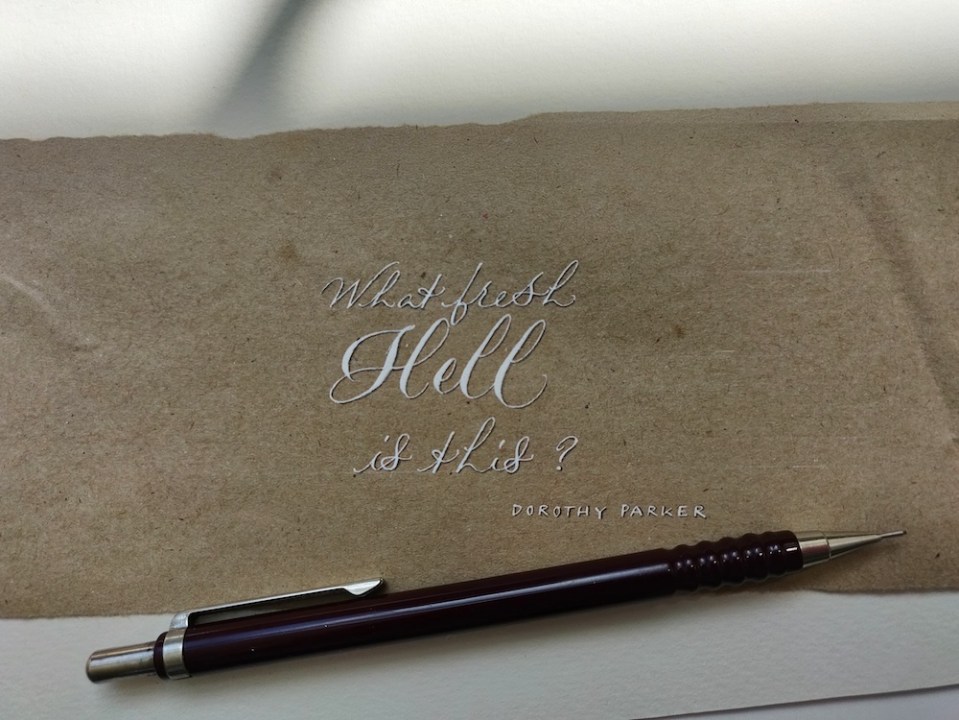 What fresh
Hell
is this ?
DOROTHY PARKER